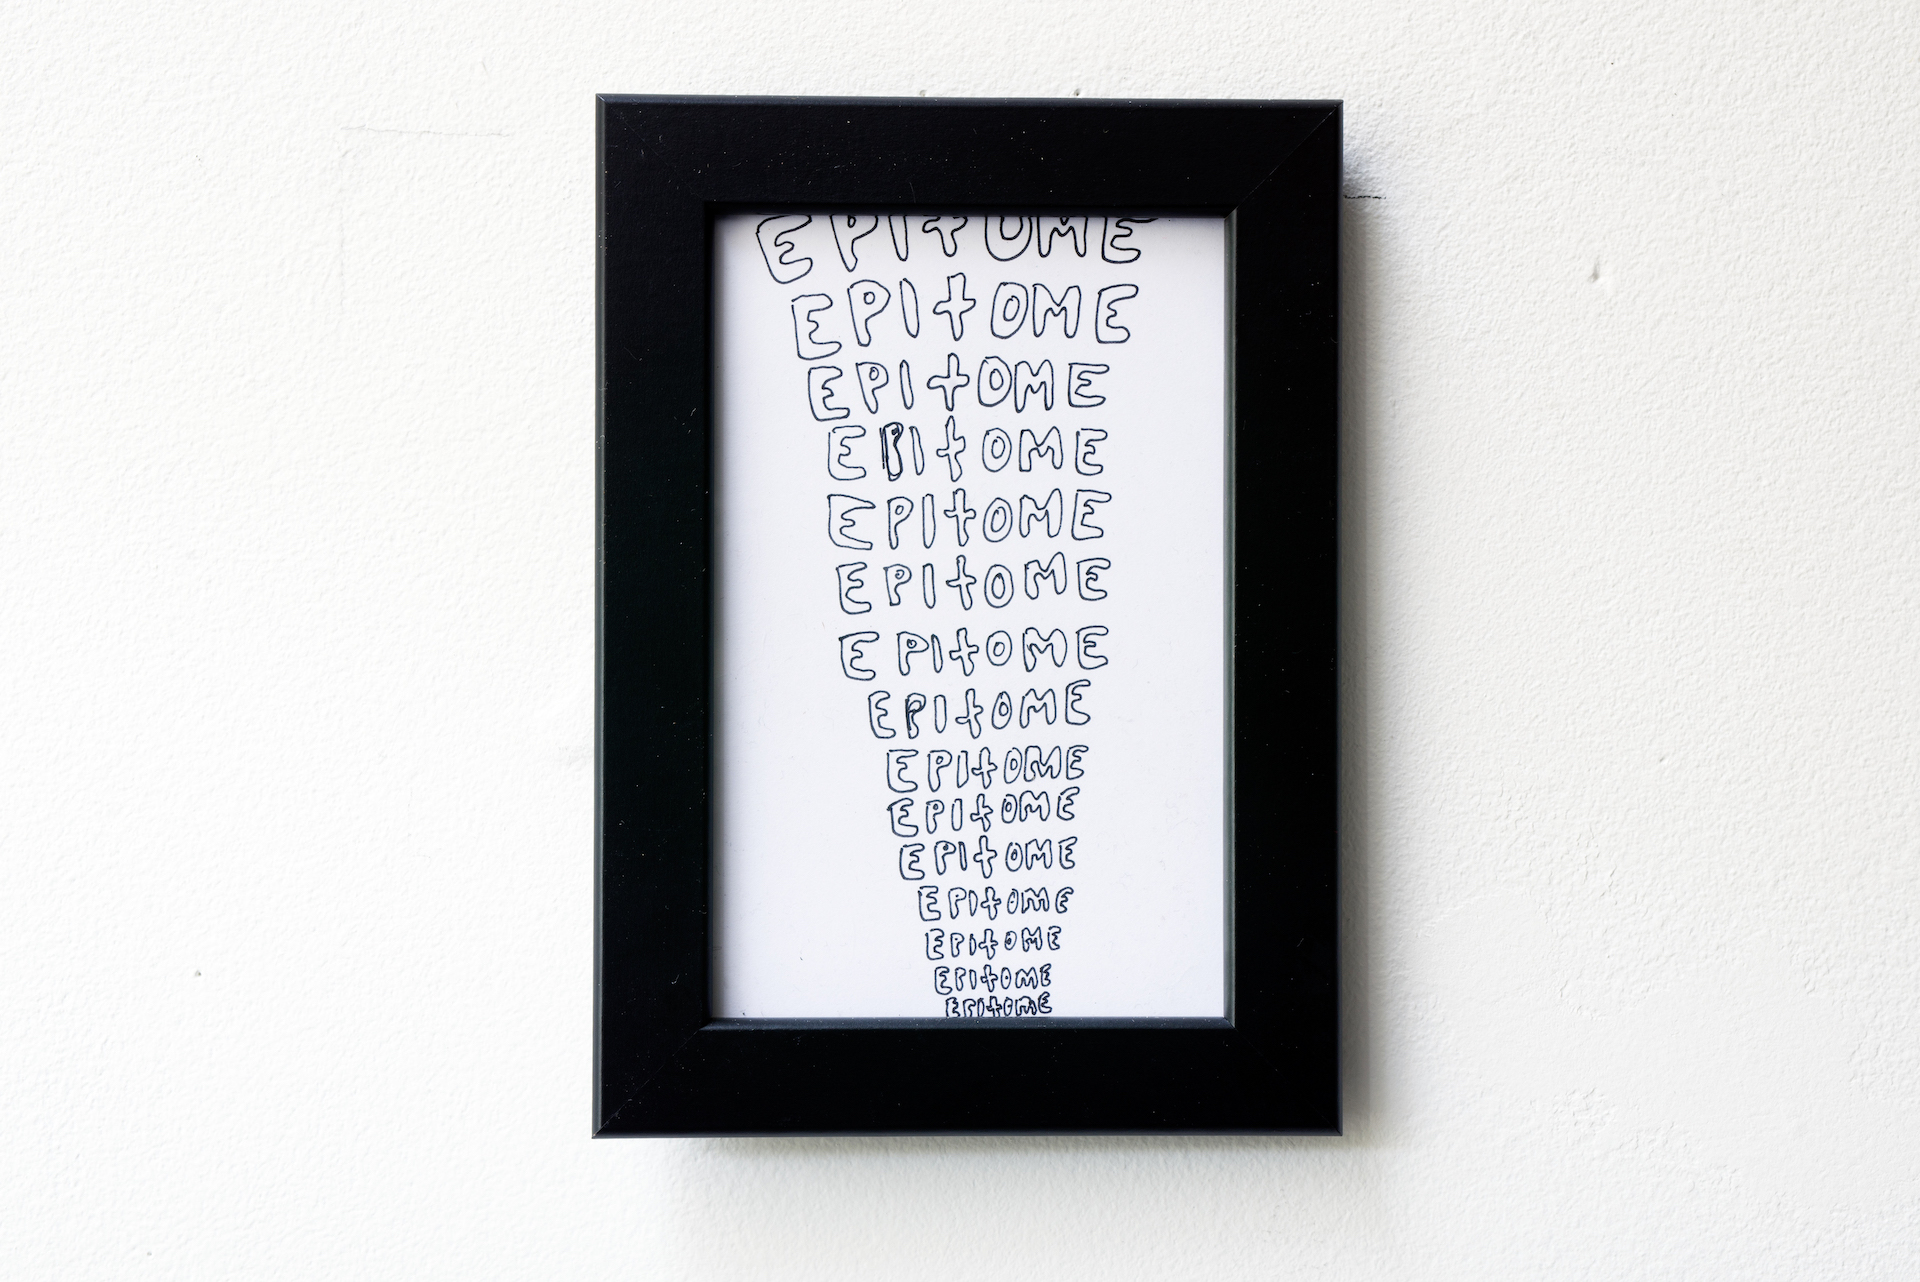 EPItOME
EPItOME
EPItOME
EPItOME
EPItOME
EPItOME
EPItOME
EPItOME
EPItOME
EPItOME
EPItOME
EPItOME
EPItOME
EPItOME
EPItOME